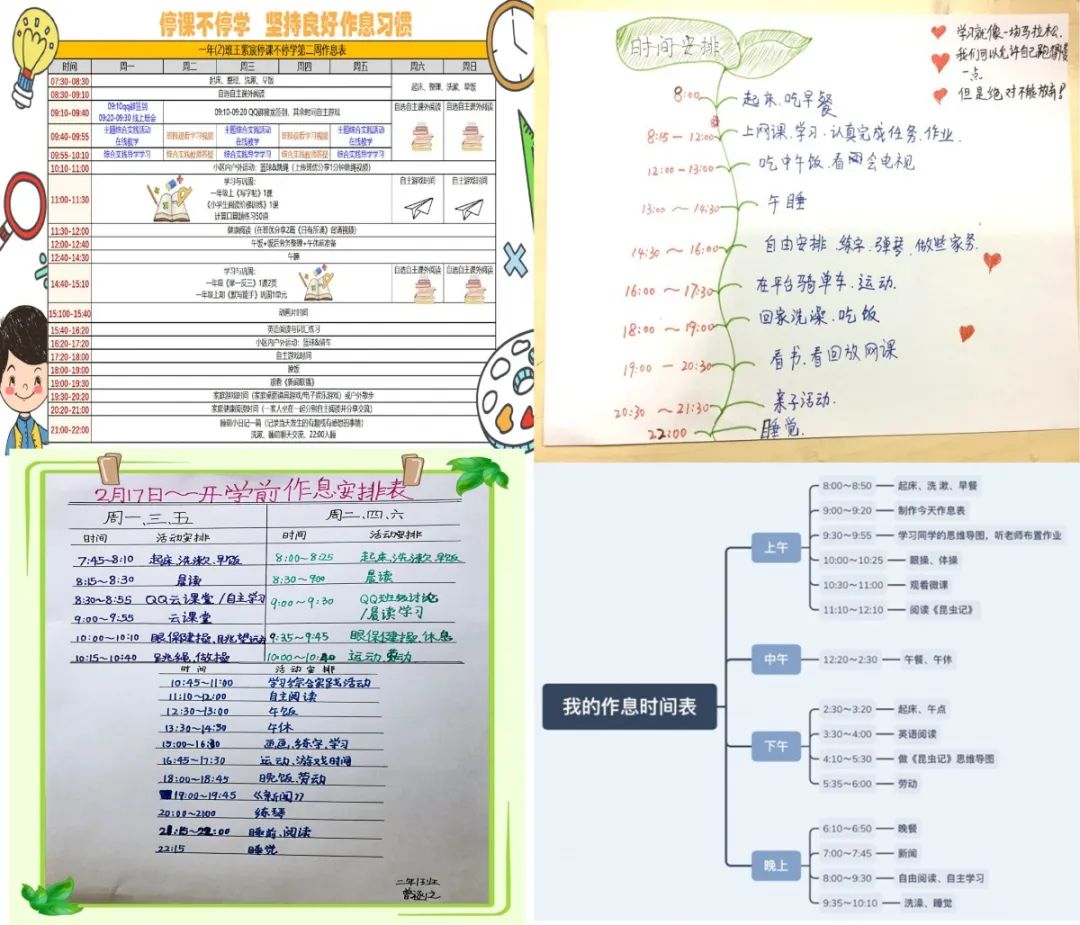 停课不停学 坚持良好作息习惯
一年(2)班王紫宸停课不停学第二周作息表
时间 周一 周二 周三 周四 周五 周六 周日
07:30-08:30 起床、整理、洗漱、早饭 起床、整理、洗漱、早饭
08:30-09:10 自选自主课外阅读
09:10-09:40 09:10qq群签到 09:10-09:20 QQ群接龙签到，其余时间自主游戏 自选自主课外阅读 自选自主课外阅读
09:20-09:30 线上班会
09:40-09:55 主题综合实践活动 主题综合实践活动 主题综合实践活动
在线教学 在线教学 在线教学
09:55-10:10 综合实践导学学习 综合实践教师答疑 综合实践导学学习 综合实践教师答疑 综合实践导学学习
10:10-11:00 小区内户外运动：篮球&跳绳（上传班优分享1分钟跳绳视频）
11:00-11:30 学习与巩固： 自主游戏时间 自主游戏时间
一年级上《写字帖》1课
《小学生阅读阶梯训练》1课
计算口算题练习50道
11:30-12:00 健康阅读（在班优分享2篇《日有所诵》背诵视频）
12:00-12:40 午饭+饭后劳务整理+午休前准备
12:40-14:30 午睡
14:40-15:10 学习与巩固： 自选自主课外阅读 自选自主课外阅读
一年级《举一反三》1课2页
一年级上期《默写能手》巩固1单元
15:100-15:40 动画片时间
15:40-16:20 英语阅读与词汇练习
16:20-17:20 小区内户外运动：篮球&骑车
17:20-18:00 自主游戏时间
18:00-19:00 晚饭
19:00-19:30 观看《新闻联播》
19:30-20:20 家庭游戏时间（家庭桌面棋局游戏/电子娱乐游戏）或户外散步
20:20-21:00 家庭健康阅读时间（一家人坐在一起分别自主阅读并分享交流）
21:00-22:00 睡前小日记一篇（记录当天发生的有趣或有感想的事情）
洗漱、睡前聊天交流，22:00入睡
时间安排
学习就像一场马拉松,
我们可以允许自己跑得慢
一点
但是绝对不能放弃!
8:00 起床.吃早餐
8:15 ~ 12:00 上网课.学习.认真完成任务.作业.
12:00-13:00 吃中午饭.看会电视
13:00 ~ 14:30 午睡
14:30 ~ 16:00 自由安排.练字.弹琴.做些家务.
16:00 ~ 17:30 在平台骑单车.运动.
18:00 ~ 19:00 回家洗澡.吃饭
19:00 ~ 20:30 看书.看回放网课
20:30 ~ 21:30 亲子活动.
22:00 睡觉.
2月17日~开学前作息安排表
周一、三、五 周二、四、六
时间 活动安排 时间 活动安排
7:45~8:10 起床、洗漱、早饭 8:00~8:25 起床、洗漱、早饭
8:15~8:30 晨读 8:30~900 晨读
8:30~8:55 QQ云课堂/自主学习 9:00~9:30 QQ班级讨论
/晨读学习
9:00~9:55 云课堂
10:00~10:10 眼保健操、眺望运动 9:35~9:45 眼保健操、休息
10:15~10:40 跳绳、做操 10:00~10:40 运动、劳动
时间 活动安排
10:45~11:00 学习综合实践活动
11:10~12:00 自主阅读
12:30~13:00 午饭
13:30~14:50 午休
15:00~16:30 画画、练字、学习
16:45~17:30 运动、游戏时间
18:00~18:45 晚饭、劳动
19:00~19:45 《新闻》
20:00~2100 练琴
21:15~22:00 睡前、阅读
22:15 睡觉
我的作息时间表
上午
8:00~8:50 起床、洗漱、早餐
9:00~9:20 制作今天作息表
9:30~9:55 学习同学的思维导图，听老师布置作业
10:00~10:25 眼操、体操
10:30~11:00 观看微课
11:10~12:10 阅读《昆虫记》
中午
12:20~2:30 午餐、午休
下午
2:30~3:20 起床、午点
3:30~4:00 英语阅读
4:10~5:30 做《昆虫记》思维导图
5:35~6:00 劳动
晚上
6:10~6:50 晚餐
7:00~7:45 新闻
8:00~9:30 自由阅读、自主学习
9:35~10:10 洗澡、睡觉